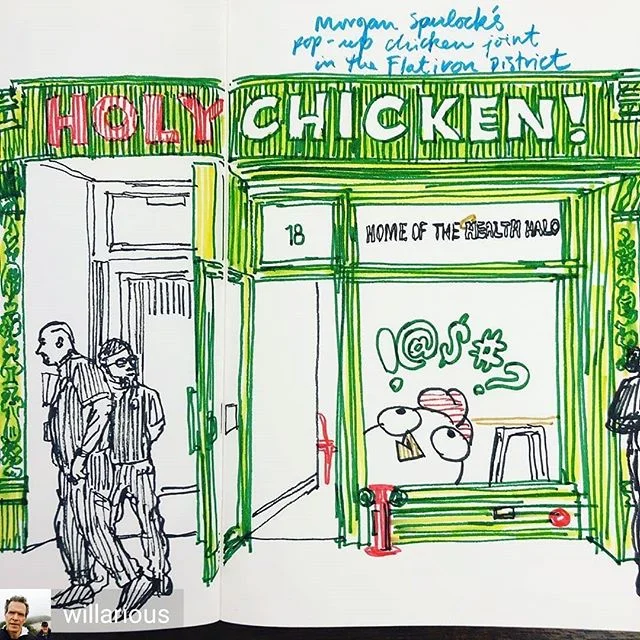 Morgan Spurlock's
pop-up chicken joint
in the Flatiron District
HOLY CHICKEN!
18
HOME OF THE HEALTH HALO
!@$#?
willarious